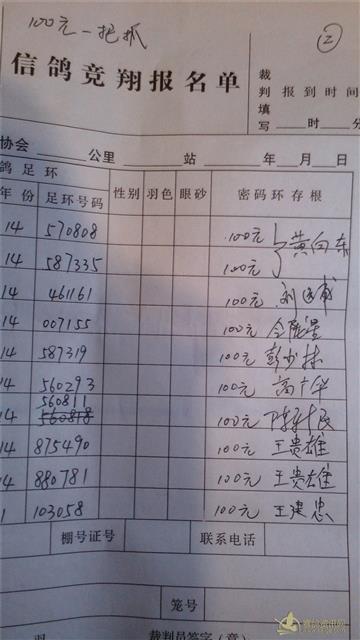 100元一把抓
②
信鸽竞翔报名单
裁判填写 报到时间
时 分
协会 公里 站 年 月 日
鸽足环
年份 足环号码 性别 羽色 眼砂 密码环存根
14 570808 100元 黄向东
14 587335 100元
14 461161 100元 刘
14 007155 100元
14 587319 100元 彭少林
14 560293 100元 高广华
560811
14 560818 100元 陈
14 875490 100元 王贵雄
14 880781 100元 王贵雄
1 103058 100元 王建忠
棚号证号 联系电话
笼号
羽 裁判员签字(章)